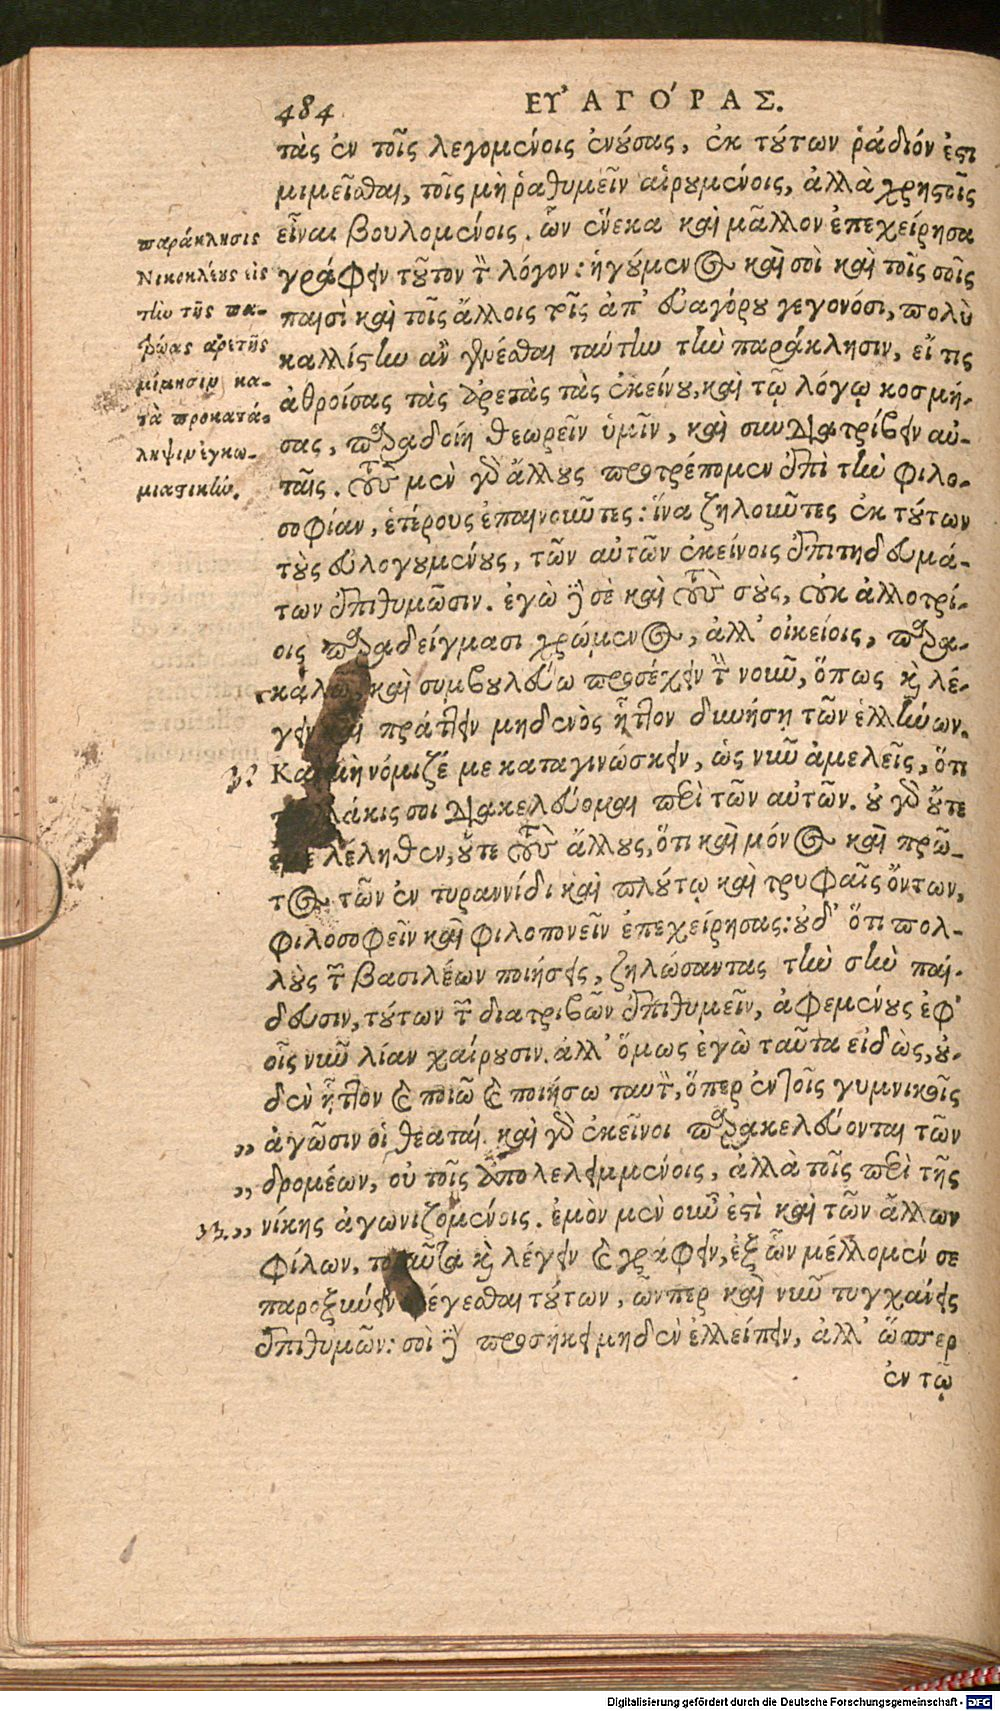 484 ΕΥ̓ΑΓΌΡΑΣ.
τὰς ἐν τοῖς λεγομένοις ἐνούσας, ἐκ τούτων ῥάδιόν ἐστι
μιμεῖσθαι, τοῖς μὴ ῥαθυμεῖν αἱρουμένοις, ἀλλὰ χρηστοῖς
εἶναι βουλομένοις. ὧν ἕνεκα καὶ μᾶλλον ἐπεχείρησα
γράφειν τοῦτον τὸν λόγον: ἡγούμενος καὶ σοὶ καὶ τοῖς σοῖς
παισὶ καὶ τοῖς ἄλλοις τοῖς ἀπ' εὐαγόρου γεγονόσι, πολὺ
καλλίστην ἂν γενέσθαι ταύτην τὴν παράκλησιν, εἴ τις
ἀθροίσας τὰς ἀρετὰς τὰς ἐκείνου, καὶ τῷ λόγῳ κοσμή-
σας, παραδοίη θεωρεῖν ὑμῖν, καὶ συνδιατρίβειν αὐ-
ταῖς. τοὺς μὲν γὰρ ἄλλους προτρέπομεν ἐπὶ τὴν φιλο-
σοφίαν, ἑτέρους ἐπαινοῦντες: ἵνα ζηλοῦντες ἐκ τούτων
τοὺς εὐλογουμένους, τῶν αὐτῶν ἐκείνοις ἐπιτηδευμά-
των ἐπιθυμῶσιν. ἐγὼ δὲ σὲ καὶ τοὺς σοὺς, οὐκ ἀλλοτρί-
οις παραδείγμασι χρώμενος, ἀλλ' οἰκείοις, παρα-
καλῶ, καὶ συμβουλεύω προσέχειν τὸν νοῦν, ὅπως καὶ λέ-
γειν καὶ πράττειν μηδενὸς ἧττον δυνήσῃ τῶν ἑλλήνων.
Καὶ μὴ νόμιζέ με καταγινώσκειν, ὡς νῦν ἀμελεῖς, ὅτι
πολλάκις σοι διακελεύομαι περὶ τῶν αὐτῶν. οὐ γὰρ οὔτε
ἐμὲ λέληθεν, οὔτε τοὺς ἄλλους, ὅτι καὶ μόνος καὶ πρῶ-
τος τῶν ἐν τυραννίδι καὶ πλούτῳ καὶ τρυφαῖς ὄντων,
φιλοσοφεῖν καὶ φιλοπονεῖν ἐπεχείρησας: οὐδ' ὅτι πολ-
λοὺς τῶν βασιλέων ποιήσεις, ζηλώσαντας τὴν σὴν παί-
δευσιν, τούτων τῶν διατριβῶν ἐπιθυμεῖν, ἀφεμένους ἐφ'
οἷς νῦν λίαν χαίρουσιν. ἀλλ' ὅμως ἐγὼ ταῦτα εἰδὼς, οὐ-
δὲν ἧττον καὶ ποιῶ καὶ ποιήσω ταυτὸν, ὅπερ ἐν τοῖς γυμνικοῖς
„ ἀγῶσιν οἱ θεαταί. καὶ γὰρ ἐκεῖνοι παρακελεύονται τῶν
„ δρομέων, οὐ τοῖς ἀπολελειμμένοις, ἀλλὰ τοῖς περὶ τῆς
„ νίκης ἀγωνιζομένοις. ἐμὸν μὲν οὖν ἐστὶ καὶ τῶν ἄλλων
φίλων, τοιαῦτα καὶ λέγειν καὶ γράφειν, ἐξ ὧν μέλλομέν σε
παροξυνεῖν ὀρέγεσθαι τούτων, ὧνπερ καὶ νῦν τυγχάνεις
ἐπιθυμῶν: σοὶ δὲ προσήκει μηδὲν ἐλλείπειν, ἀλλ' ὥσπερ
ἐν τῷ
παράκλησις
Νικοκλέους εἰς
τὴν τῆς πα-
τρῴας ἀρετῆς
μίμησιν κα-
τὰ προκατά-
ληψιν ἐγκω-
μιαστικήν.